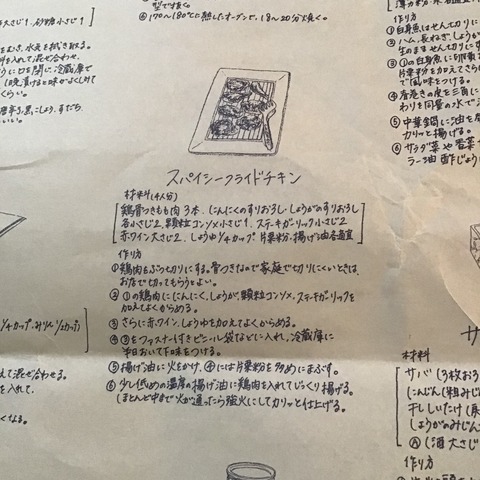 型で抜く。
⑥170〜180℃に熱したオーブンで、18〜20分焼く。
スパイシーフライドチキン
材料(4人分)
鶏骨つきもも肉3本、にんにくのすりおろし・しょうがのすりおろし
各小さじ2、顆粒コンソメ小さじ1、ステーキガーリック小さじ2
赤ワイン大さじ2、しょうゆ1/4カップ 片栗粉・揚げ油各適宜
作り方
①鶏肉をぶつ切りにする。骨つきなので家庭で切りにくいときは、
お店で切ってもらうとよい。
②①の鶏肉ににんにく、しょうが、顆粒コンソメ、ステーキガーリックを
加えてよくからめる。
③さらに赤ワイン、しょうゆを加えてよくからめる。
④③をファスナー付きビニール袋などに入れ、冷蔵庫に
半日おいて下味をつける。
⑤揚げ油に火をかけ、④には片栗粉を多めにまぶす。
⑥少し低めの温度の揚げ油に鶏肉を入れてじっくり揚げる。
ほとんど中まで火が通ったら強火にしてカリッと仕上げる。
作り方
①白身魚はせん切りに
②ハム、長ねぎ、しょうが
生のませせん切りに
③①の白身魚に
片栗粉を加えてさら
で風味をつける。
④春巻きの皮を三角に
わりを同量の水で
⑤中華鍋に油を
カリッと揚げる。
⑥サラダ菜や
ラー油 酢じょう
1/4カップ・みりん1/2カップ
えて混ぜ合わせる。
を入れて、
くなる。
サ
材料
サバ(3枚おろ
にんじん(粗みじん
干ししいたけ(
しょうがのみじん
Ⓐ(酒大さじ
作り方